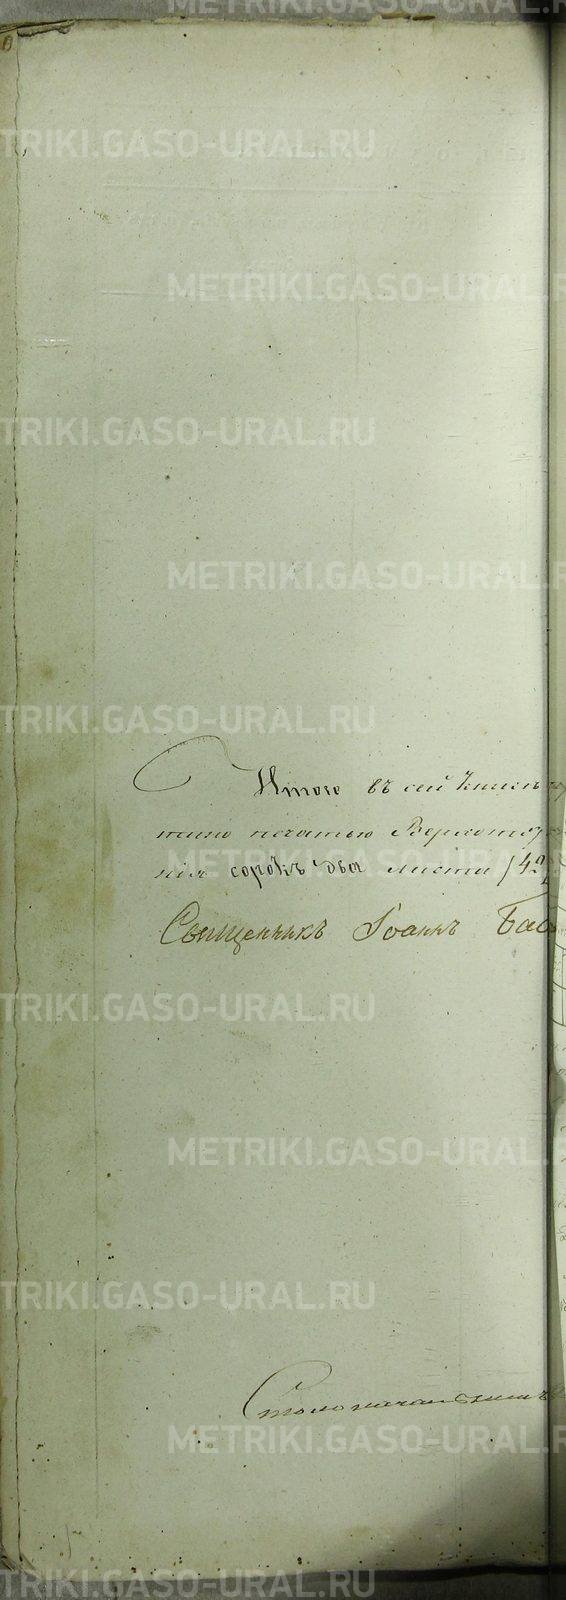 Итого въ сей книгѣ
тано печатью Верхотур
нія сорокъ два листа /42
Священникъ Іоаннъ Бас
Столоначальникъ
METRIKI.GASO-URAL.R
TRIKI.GASO-URAL.RU
METRIKI.GASO-URAL.R
TRIKI.GASO-URAL.RU
METRIKI.GASO-URAL.R
TRIKI.GASO-URAL.RU
TRIKI.GASO-URAL.RU
METRIKI.GASO-URAL.R
TRIKI.GASO-URAL.RU
METRIKI.GASO-URAL.R
TRIKI.GASO-URAL.RU